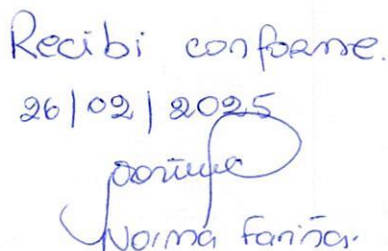 Recibi conforme.
26/02/2025
Norma Fariña.